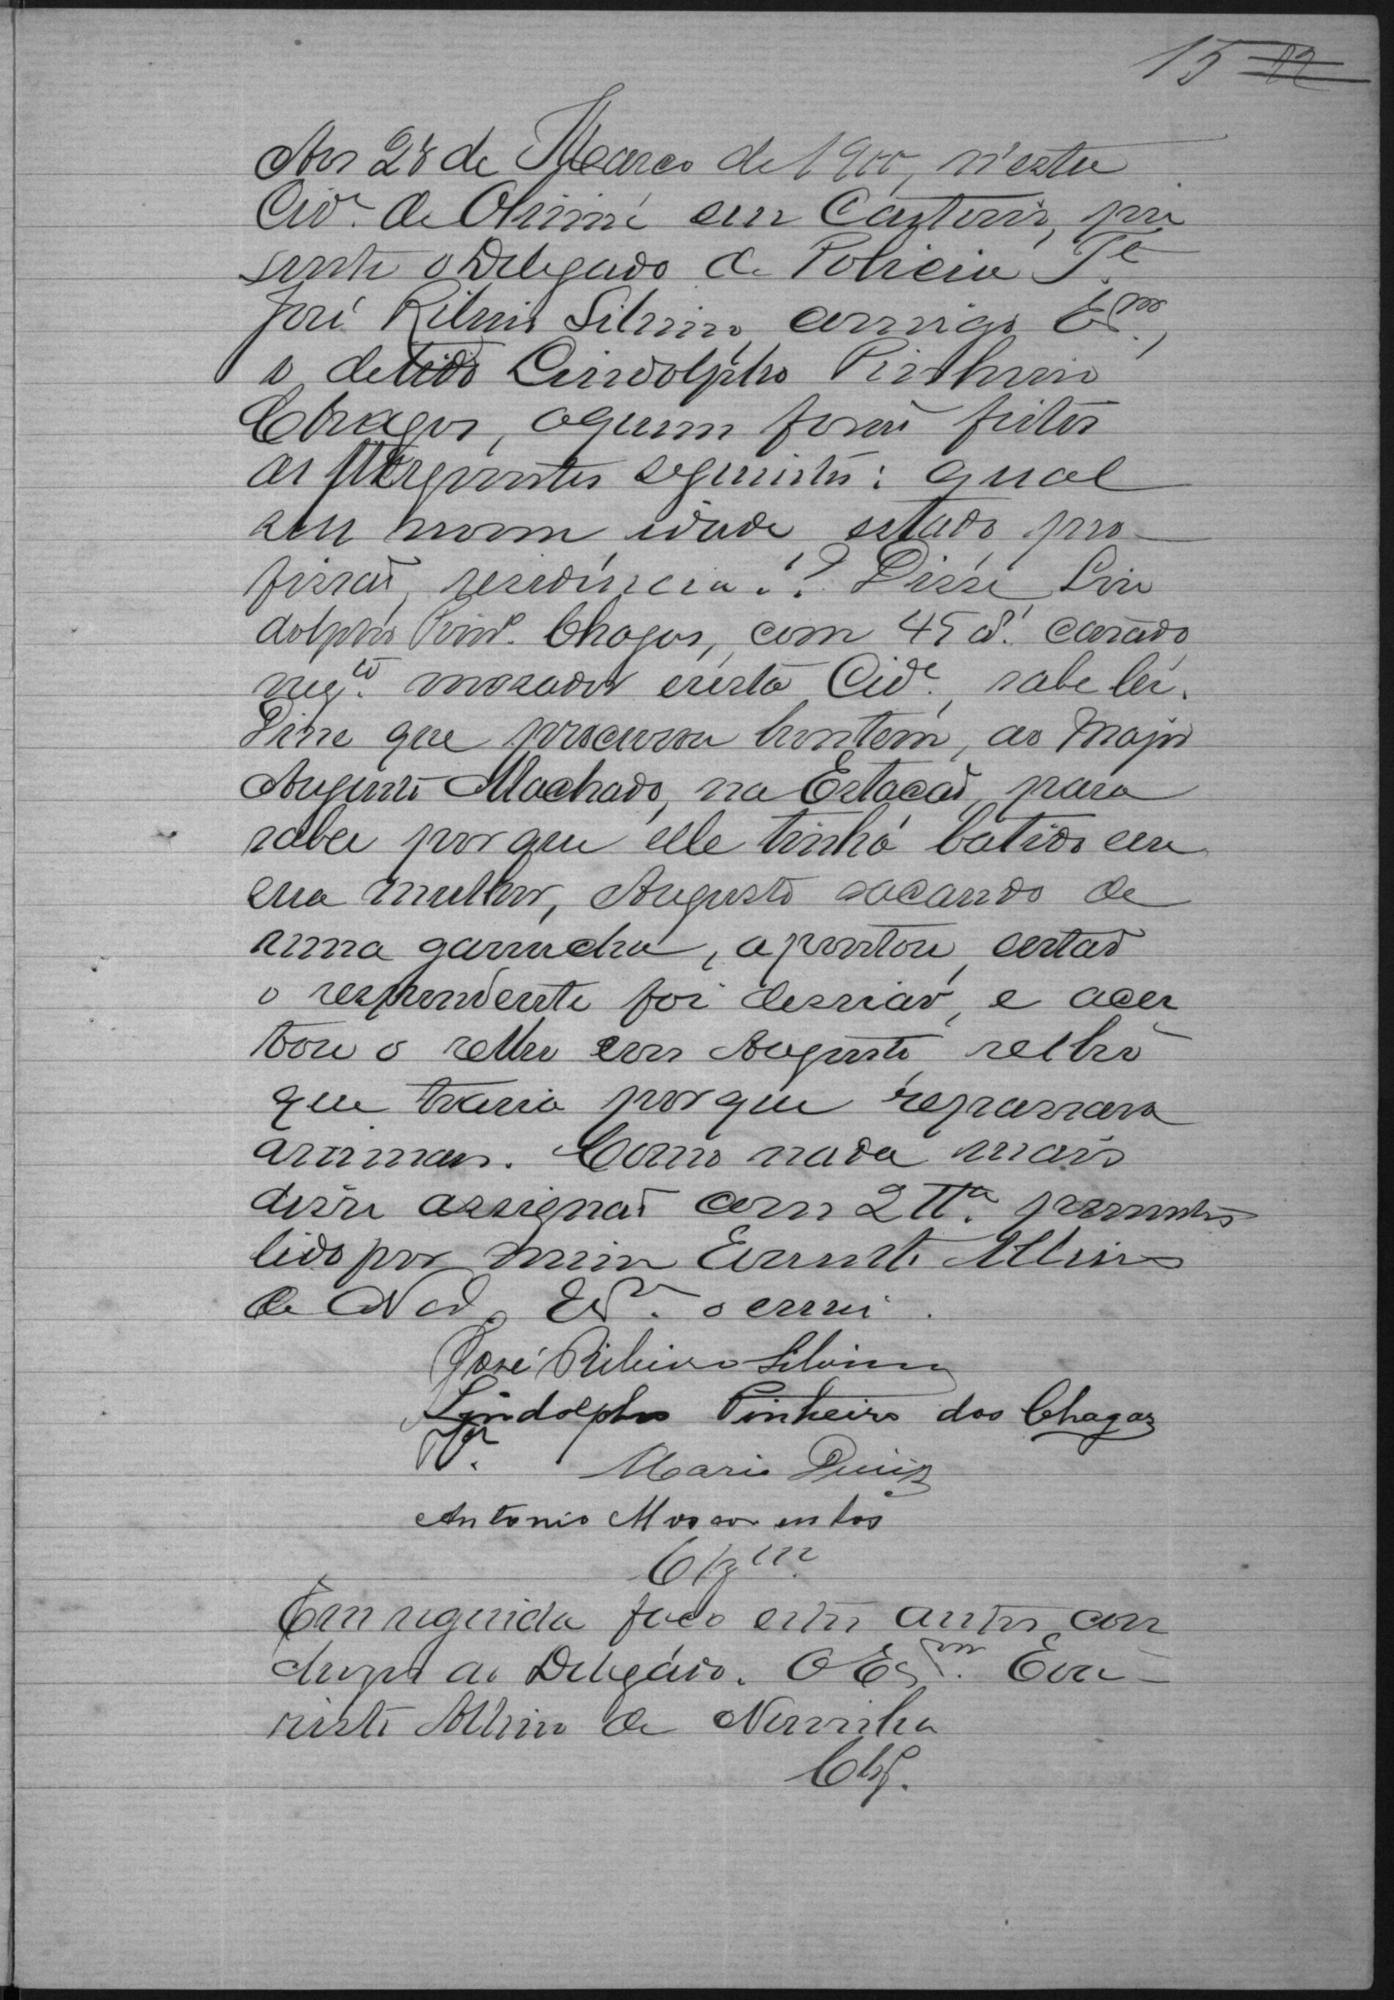 15 12
Aos 28 de Março de 1900, n'esta
Cid.e de em Cartorio, pre
sente o Delegado de Policia T.e
José Ribeiro Silvino, comigo Es.m,
o detido Lindolpho Pinheiro
Chagas, a quem forão feitas
as perguntas seguintes: qual
seu nome idade estado pro
fissão, residencia? Disse Lin
dolpho Pinh.o Chagas, com 45 a.s casado
neg.te morador nesta Cid.e, sabe ler.
Disse que procurou hontem, ao Major
Augusto Machado, na Estação, para
saber por que elle tinha batido em
sua mulher, Augusto sacando de
uma garrucha, apontou, então
o respondente foi desviar, e acer
tou o relho em Augusto, relho
que trazia porque repassava
animaes. Como nada mais
disse assignão com 2 TT.as presentes
lido por mim Evaristo Albino
de Nor.a Es.m o escrevi.
José Ribeiro Silvino
Lindolpho Pinheiro das Chagas
Mario Diniz
Antonio
Clz.m
Em seguida faço estes autos con
clusos ao Delegado. O Es.m Eva
risto Albino de Noronha
Clz.